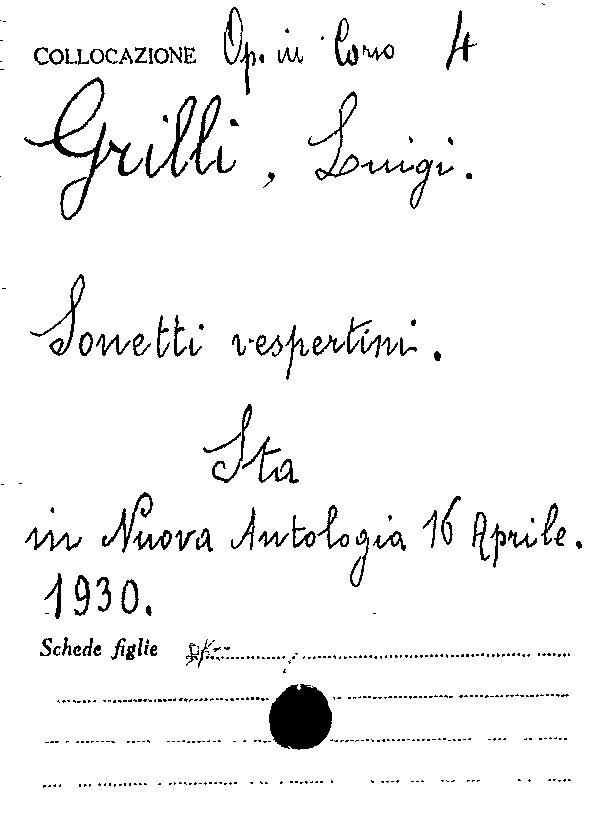 COLLOCAZIONE Op. in Corso 4
Grilli, Luigi.
Sonetti vespertini.
Sta
in Nuova Antologia 16 Aprile.
1930.
Schede figlie